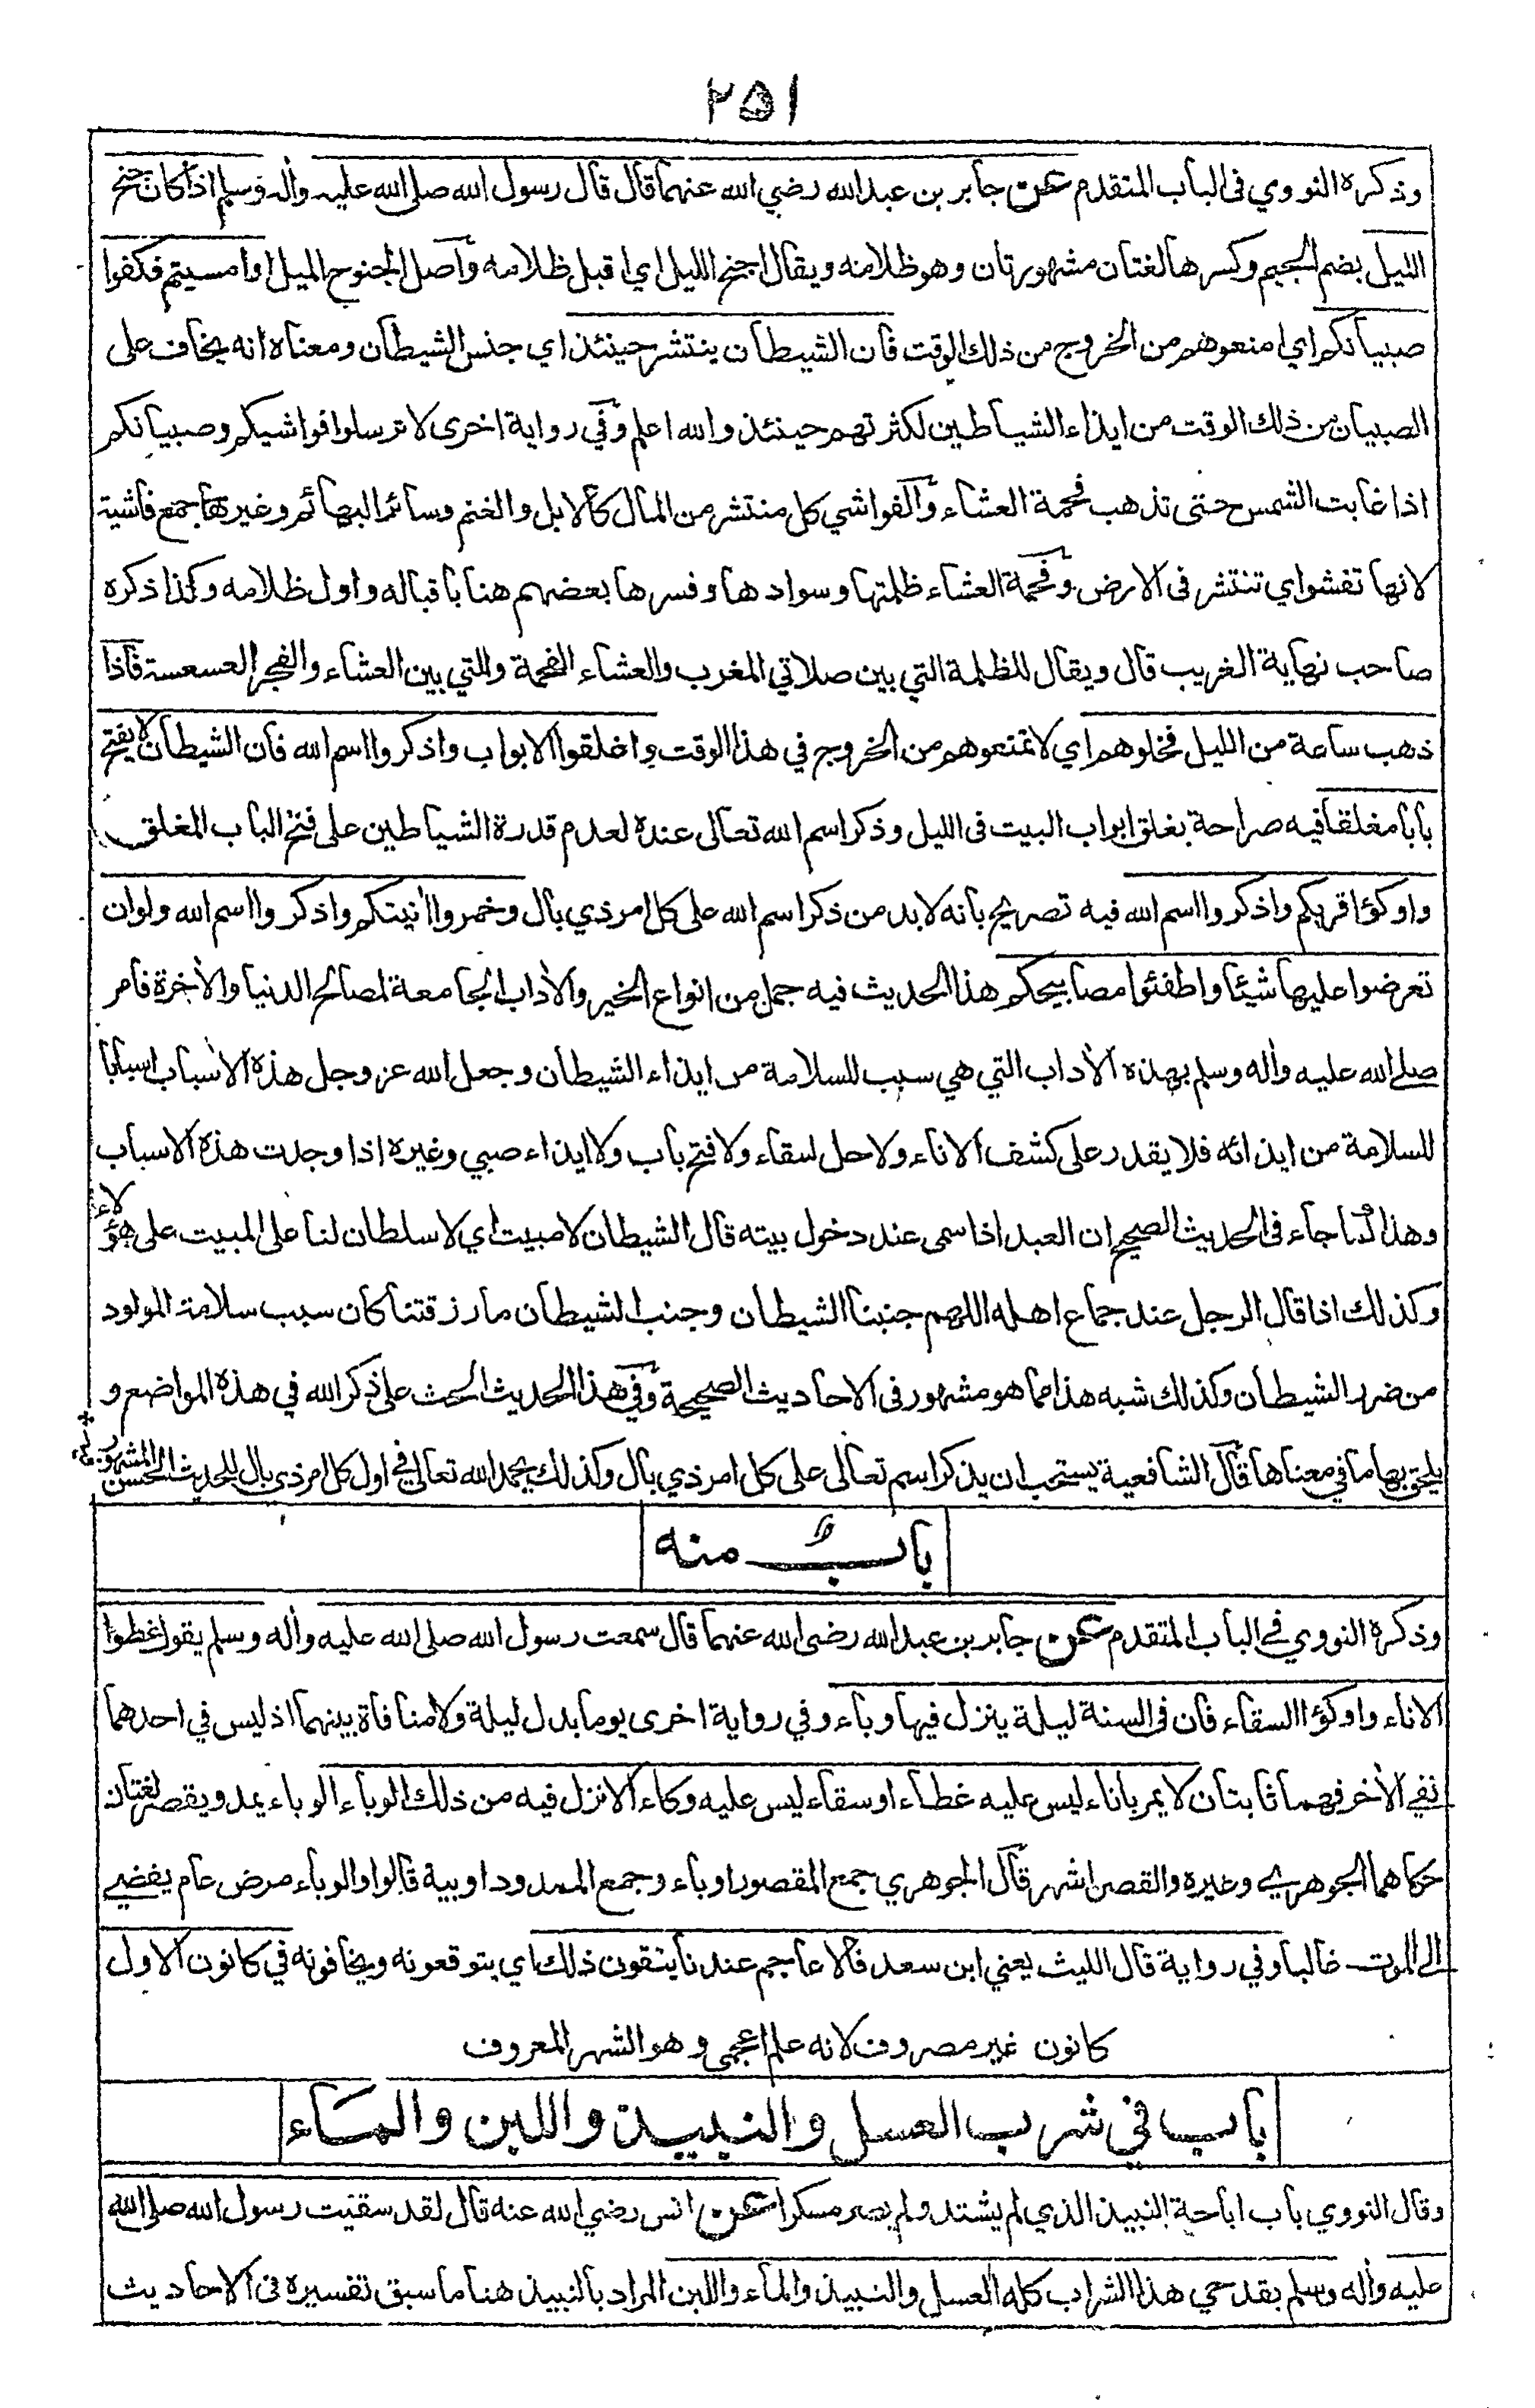 ٢٥١
وذكره النووي فى الباب المتقدم عن جابر بن عبدالله رضي الله عنهما قال قال رسول الله صلى الله عليه واله وسلم اذا كان جنح
الليل بضم الجيم وكسرها لغتان مشهورتان وهو ظلامه ويقال اجنح الليل اي اقبل ظلامه وأصل الجنوح الميل او امسيتم فكفوا
صبيانكم اي امنعوهم من الخروج من ذلك الوقت فان الشيطان ينتشر حينئذ اي جنس الشيطان ومعناه انه يخاف على
الصبيان من ذلك الوقت من ايذاء الشياطين لكثرتهم حينئذ والله اعلم وفي رواية اخرى لا ترسلوا فواشيكم وصبيانكم
اذا غابت الشمس حتى تذهب فحمة العشاء والفواشي كل منتشر من المال كالابل والغنم وسائر البهائم وغيرها جمع فاشية
لانها تفشو اي تنتشر فى الارض وفحمة العشاء ظلمتها وسوادها وفسرها بعضهم هنا باقباله واول ظلامه وكذا ذكره
صاحب نهاية الغريب قال ويقال للظلمة التي بين صلاتي المغرب والعشاء الفحمة والتي بين العشاء والفجر العسعسة فاذا
ذهب ساعة من الليل فخلوهم اي لا تمنعوهم من الخروج في هذا الوقت واغلقوا الابواب واذكروا اسم الله فان الشيطان لا يفتح
بابا مغلقا فيه صراحة بغلق ابواب البيت فى الليل وذكر اسم الله تعالى عنده لعدم قدرة الشياطين على فتح الباب المغلق
واوكؤا قربكم واذكروا اسم الله فيه تصريح بانه لا بد من ذكر اسم الله على كل امر ذي بال وخمروا انيتكم واذكروا اسم الله ولو ان
تعرضوا عليها شيئا واطفئوا مصابيحكم هذا الحديث فيه جمل من انواع الخير والأداب الجامعة لمصالح الدنيا والأخرة فامر
صلى الله عليه واله وسلم بهذه الأداب التي هي سبب للسلامة من ايذاء الشيطان وجعل الله عز وجل هذه الاسباب اسبابا
للسلامة من ايذائه فلا يقدر على كشف الاناء ولا حل سقاء ولا فتح باب ولا ايذاء صبي وغيره اذا وجدت هذه الاسباب
وهذا كما جاء فى الحديث الصحيح ان العبد اذا سمى عند دخول بيته قال الشيطان لا مبيت اي لا سلطان لنا على المبيت على هؤلاء
وكذلك اذا قال الرجل عند جماع اهله اللهم جنبنا الشيطان وجنب الشيطان ما رزقتنا كان سبب سلامة المولود
من ضرر الشيطان وكذلك شبه هذا مما هو مشهور فى الاحاديث الصحيحة وفي هذا الحديث الحث على ذكر الله في هذه المواضع و
يلحق بها ما في معناها قال الشافعية يستحب ان يذكر اسم تعالى على كل امر ذي بال وكذلك يحمد الله تعالى في اول كل امر ذي بال للحديث الحسن المشهور
باب منه
وذكره النووي في الباب المتقدم عن جابر بن عبدالله رضى الله عنهما قال سمعت رسول الله صلى الله عليه واله وسلم يقول غطوا
الاناء واوكؤا السقاء فان فى السنة ليلة ينزل فيها وباء وفي رواية اخرى يوما بدل ليلة ولا منافاة بينهما اذ ليس في احدهما
نفي الأخر فهما ثابتان لا يمر باناء ليس عليه غطاء او سقاء ليس عليه وكاء الا نزل فيه من ذلك الوباء الوباء يمد ويقصر لغتان
حكاهما الجوهري وغيره والقصر اشهر قال الجوهري جمع المقصور اوباء وجمع الممدود اوبية قالوا والوباء مرض عام يفضي
الى الموت غالبا وفي رواية قال الليث يعني ابن سعد فالاعاجم عندنا يتقون ذلك اي يتوقعونه ويخافونه في كانون الاول
كانون غير مصروف لانه علم اعجمى وهو الشهر المعروف
باب في شرب العسل والنبيذ واللبن والماء
وقال النووي باب اباحة النبيذ الذي لم يشتد ولم يصر مسكرا عن انس رضي الله عنه قال لقد سقيت رسول الله صلى الله
عليه واله وسلم بقدحي هذا الشراب كله العسل والنبيذ والماء واللبن المراد بالنبيذ هنا ما سبق تفسيره فى الاحاديث